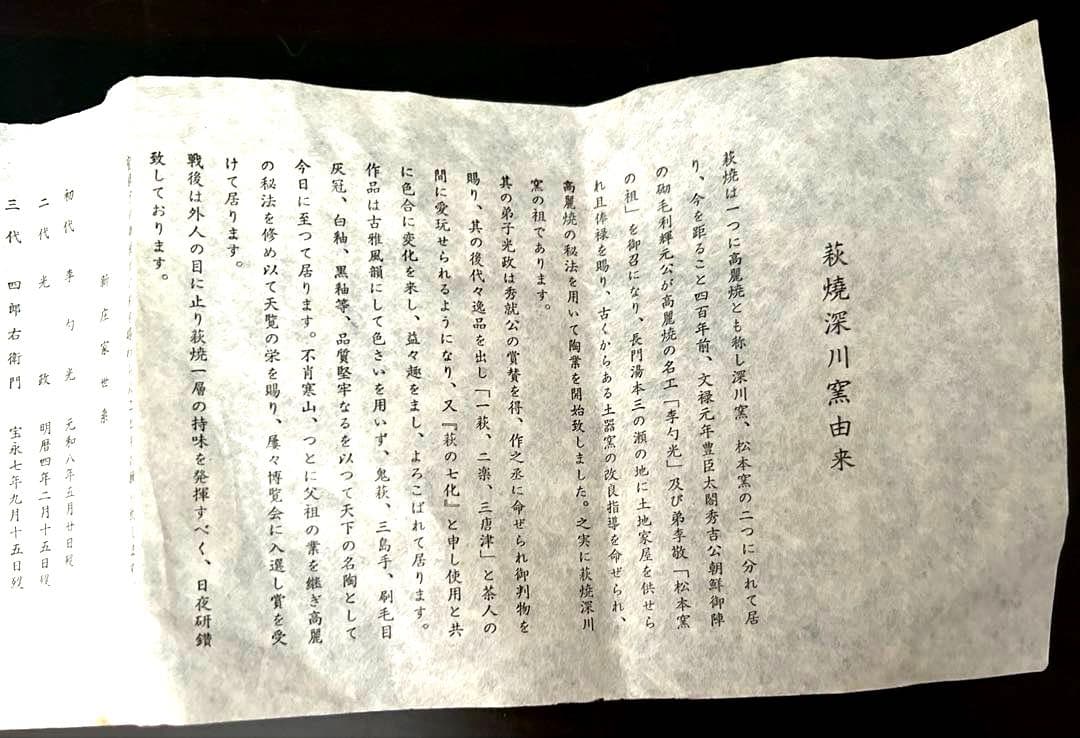 萩燒深川窯由来
萩焼は一つに高麗焼とも称し深川窯、松本窯の二つに分れて居
り、今を距ること四百年前、文禄元年豊臣太閤秀吉公朝鮮御陣
の砌毛利輝元公が高麗焼の名工「李勺光」及び弟李敬「松本窯
の祖」を御召になり、長門湯本三の瀬の地に土地家屋を供せら
れ且俸禄を賜り、古くからある土器窯の改良指導を命ぜられ、
高麗焼の秘法を用いて陶業を開始致しました。之実に萩焼深川
窯の祖であります。
其の弟子光政は秀就公の賞賛を得、作之丞に命ぜられ御判物を
賜り、其の後代々逸品を出し「一萩、二楽、三唐津」と茶人の
間に愛玩せられるようになり、又『萩の七化』と申し使用と共
に色合に変化を来し、益々趣をまし、よろこばれて居ります。
作品は古雅風韻にして色さいを用いず、鬼萩、三島手、刷毛目
灰冠、白釉、黒釉等、品質堅牢なるを以つて天下の名陶として
今日に至つて居ります。不肖寒山、つとに父祖の業を継ぎ高麗
の秘法を修め以て天覧の栄を賜り、屢々博覧会に入選し賞を受
けて居ります。
戦後は外人の目に止り萩焼一層の持味を発揮すべく、日夜研鑽
致しております。
新庄家世系
初代 李勺光 元和八年五月廿日歿
二代 光政 明暦四年二月十五日歿
三代 四郎右衛門 宝永七年九月十五日歿